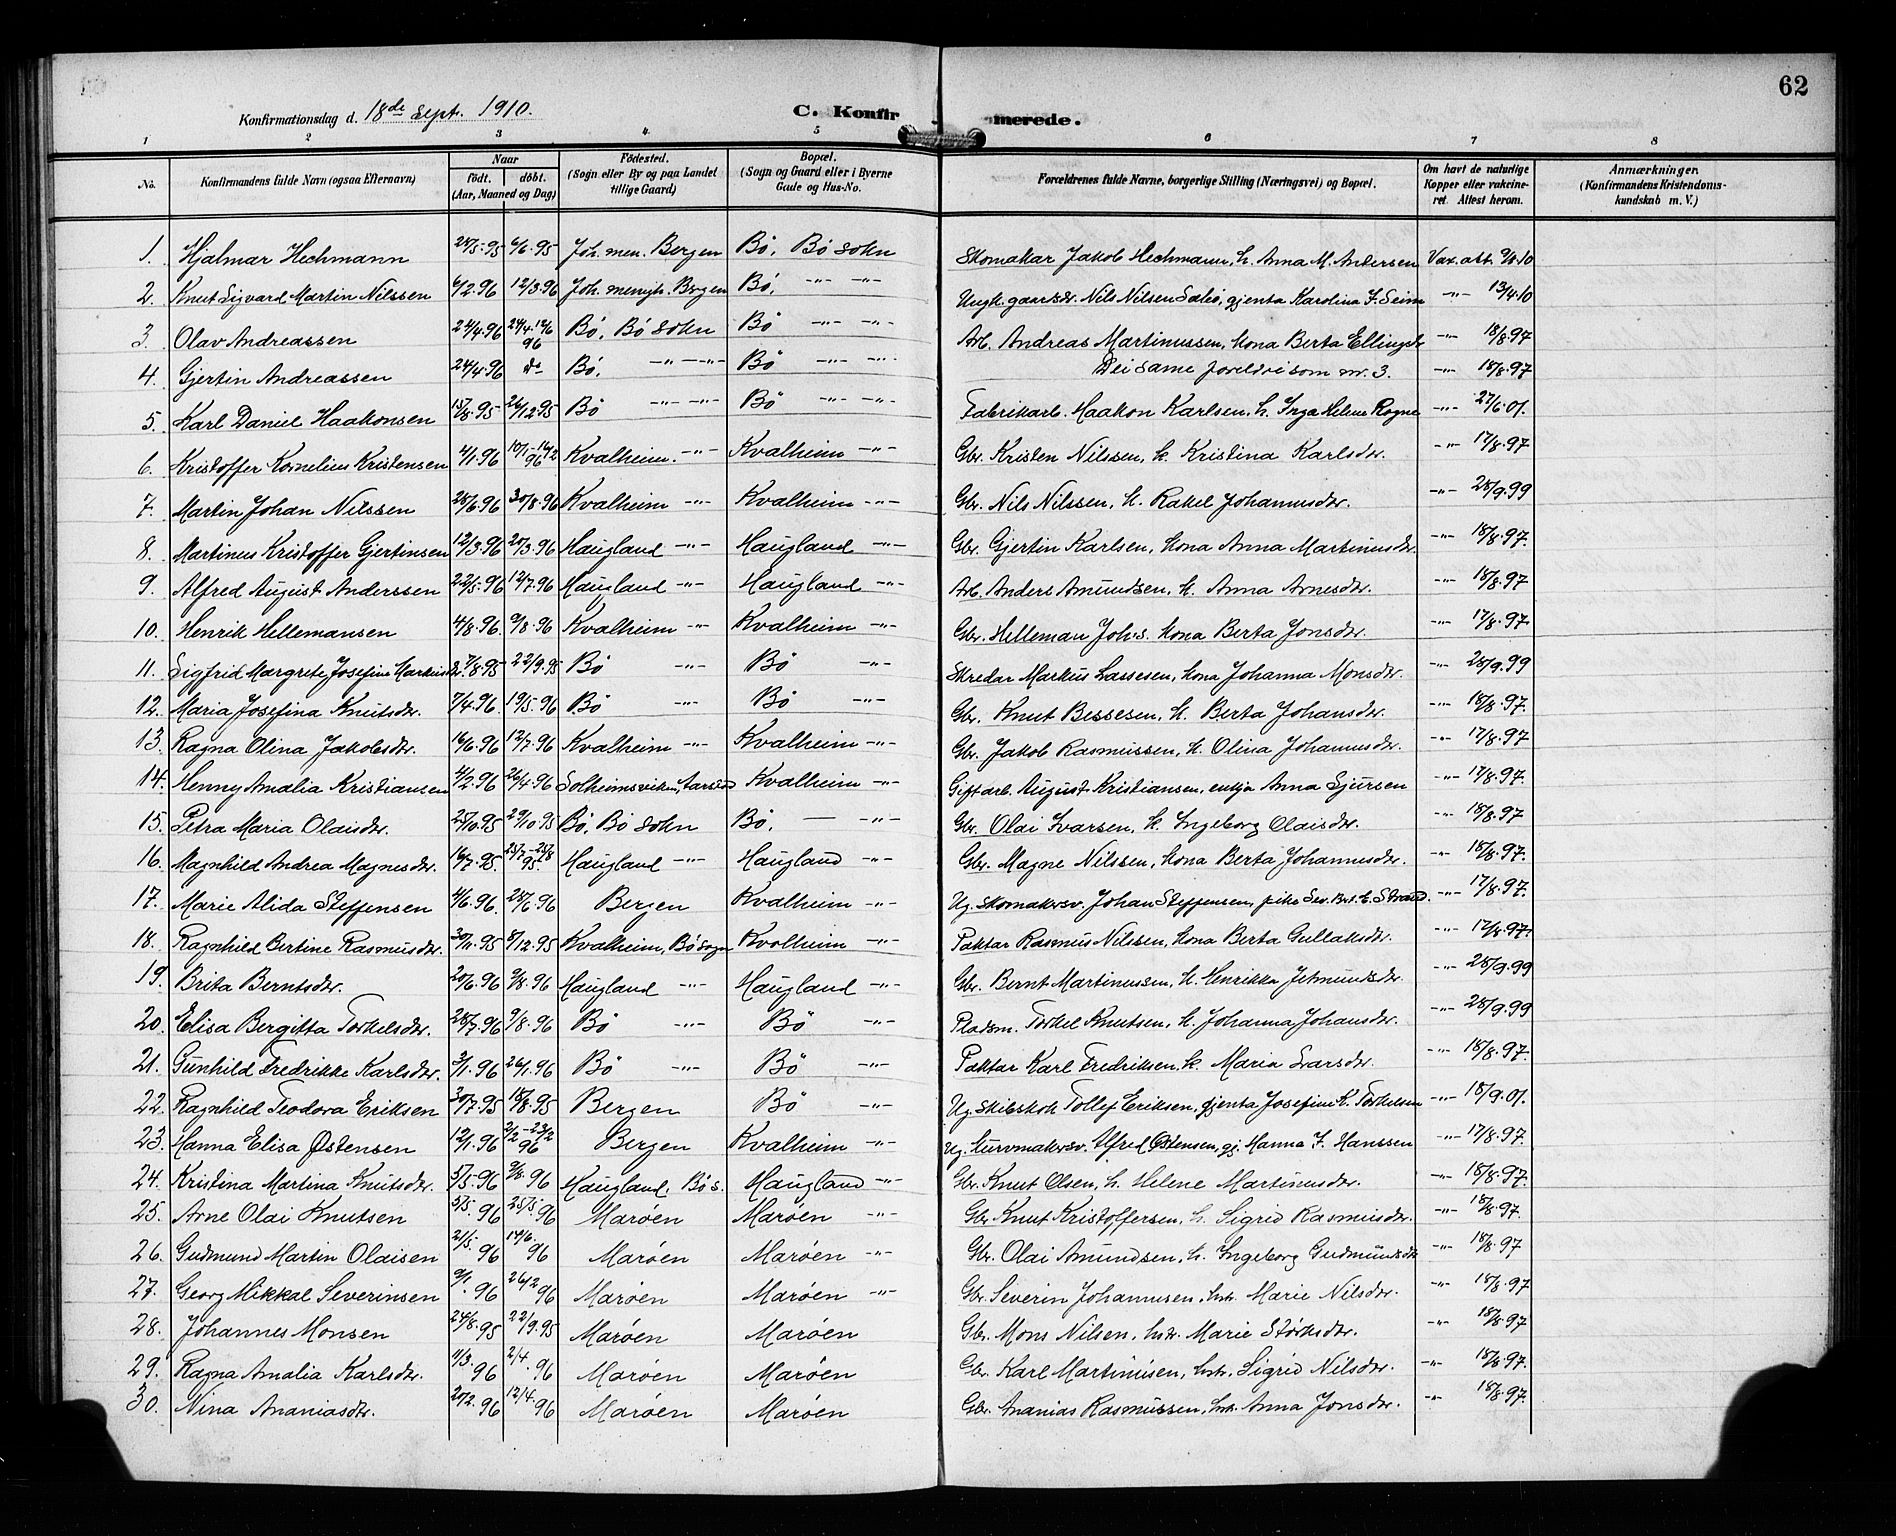 62
Konfirmationsdag d. 18de Sept. 1910. C. Konfirmerede.
1 2 3 4 5 6 7 8
No. Konfirmandens fulde Navn (ogsaa Efternavn) Naar født. døbt. (Aar, Maaned og Dag) Fødested. (Sogn eller By og paa Landet tillige Gaard) Bopæl. (Sogn og Gaard eller i Byerne Gade og Hus-No. Forældrenes fulde Navne, borgerlige Stilling (Næringsvei) og Bopæl. Om havt de naturlige Kopper eller vakcineret. Attest herom. Anmærkninger. (Konfirmandens Kristendomskundskab m. V.)
1. Hjalmar Hechmann 28/5-95 6/6-95 Joh. men. Bergen Bö, Bö sokn Skomakar Jakob Hechmann, k. Anna M. Andersen Vax. att. 10
2. Knut Sigvard Martin Nilssen 6/2.96 12/3.96 Joh. menigh. Bergen Bö, -"- -"- Ungk. gaardbr. Nils Nilsen Sælö, gjenta Karolina I. Seim -"- 13/4.10
3. Olav Andreassen 24/4.96 24/4-14/6 96 Bö, Bö sokn Bö -"- -"- Arb. Andreas Martinussen, kona Berta Ellingsdr. -"- 18/8.97
4. Gjertin Andreassen 24/4.96 do Bö, -"- -"- Bö -"- -"- Dei same foreldre som nr. 3. -"- 18/8.97
5. Karl Daniel Haakonsen 15/8.95 26/12.95 Bö -"- -"- Bö -"- -"- Fabrikarb. Haakon Karlsen, k. Inga Helene Rogne -"- 27/6.01.
6. Kristoffer Kornelius Kristensen 4/1.96 10/1-16/2 96 Kvalheim -"- Kvalheim -"- Gbr. Kristen Nilssen, k. Kristina Karlsdr. -"- 17/8.97
7. Martin Johan Nilssen 28/6.96 30/8.96 Kvalheim -"- Kvalheim -"- Gbr. Nils Nilssen, k. Rakel Johannesdr. -"- 28/9.99
8. Martinus Kristoffer Gjertinsen 12/3.96 20/3.96 Haugland -"- Haugland -"- Gbr. Gjertin Karlsen, kona Anna Martinusdr. -"- 18/8.97.
9. Alfred August Anderssen 22/5.96 12/7.96 Haugland -"- Haugland -"- Arb. Anders Amundsen, k. Anna Arnesdr. -"- 18/8.97
10. Henrik Hellemansen 4/8.96 9/8.96 Kvalheim -"- Kvalheim -"- Gbr. Helleman Johs. kona Berta Jonsdr. -"- 17/8.97
11. Sigfrid Margrete Josefine Markusdr. 7/8.95 22/9.95 Bö -"- Bö -"- Skredar Markus Lassesen, kona Johanna Monsdr. -"- 28/9.99
12. Maria Josefina Knutsdr. 7/4.96. 19/5.96 Bö -"- Bö -"- Gbr. Knut Bessesen, k. Berta Johansdr. -"- 18/8.97.
13. Ragna Olina Jakobsdr. 16/6.96 12/7.96 Kvalheim -"- Kvalheim -"- Gbr. Jakob Rasmussen, k. Olina Johannesdr. -"- 17/8.97
14. Henny Amalia Kristiansen 4/2.96 26/4.96 Solheimsviken, Aarstad Kvalheim -"- Gift arb. August Kristiansen, enkja Anna Sjursen -"- 17/8.97.
15. Petra Maria Olaisdr. 25/10.95 29/10.95 Bö, Bö sokn Bö, — -"- Gbr. Olai Ivarsen, k. Ingeborg Olaisdr. -"- 18/8.97
16. Magnhild Andrea Magnesdr. 16/7.95. 23/7-25/8 95. Haugland -"- Haugland -"- Gbr. Magne Nilssen, kona Berta Johannesdr. -"- 18/8.97.
17. Marie Alida Steffensen 4/6.96. 28/6.96 Bergen Kvalheim -"- Ug. skomakersv. Johan Steffensen, pike Sev. Brt. E. Strand. -"- 17/8.97.
18. Ragnhild Bertine Rasmusdr. 30/11.95 8/12.95 Kvalheim, Bö sogn Kvalheim -"- Paktar Rasmus Nilssen, kona Berta Gullaksdr. -"- 17/8.97.
19. Brita Berntsdr. 20/6.96 9/8.96 Haugland -"- Haugland -"- Gbr. Bernt Martinussen, k. Henrikka Jetmundsdr. -"- 28/9.99
20. Elisa Bergitta Torkelsdr. 28/7.96 9/8.96 Bö -"- Bö -"- Pladsm. Torkel Knutsen, k. Johanna Johansdr. -"- 28/9.99
21. Gunhild Fredrikke Karlsdr. 3/1.96 26/1.96 Bö -"- Bö -"- Paktar Karl Fredriksen, k. Maria Larsdr. -"- 18/8.97.
22. Ragnhild Teodora Eriksen 30/7.95 18/8.95 Bergen Bö -"- Ug. skibskok Tollef Eriksen, gjenta Josefine K. Torkelsen -"- 18/9.01.
23. Hanna Elisa Østensen 12/1.96 2/2-23/2 96 Bergen Kvalheim -"- Ug. kurvmakersv. Alfred Østensen, gj. Hanna I. Hanssen -"- 17/8.97.
24. Kristina Martina Knutsdr. 5/5.96 9/8.96 Haugland, Bö s. Haugland -"- Gbr. Knut Olsen, k. Helene Martinusdr. -"- 18/8.97.
25. Arne Olai Knutsen 5/5.96 25/5.96 Maröen Maröen -"- Gbr. Knut Kristoffersen, k. Sigrid Rasmusdr. -"- 18/8.97.
26. Gudmund Martin Olaisen 21/5.96 14/6.96 Maröen Maröen -"- Gbr. Olai Amundsen, k. Ingeborg Gudmundsdr. -"- 18/8.97
27. Georg Mikkal Severinsen 9/1.96 26/2.96 Maröen Maröen -"- Gbr. Severin Johannesen, hstr. Marie Nilsdr. -"- 18/8.97
28. Johannes Monsen 24/8.95 22/9.95 Maröen Maröen Gbr. Mons Nilsen, hstr. Marie Størksdr. -"- 18/8.97
29. Ragna Amalia Karlsdr. 11/3.96 2/4.96 Maröen Maröen Gbr. Karl Martinusen, hstr. Sigrid Nilsdr. -"- 18/8.97.
30. Nina Ananiasdr. 20/2.96 12/4.96 Maröen Maröen Gbr. Ananias Rasmussen, hstr. Anna Jonsdr. -"- 18/8.97.